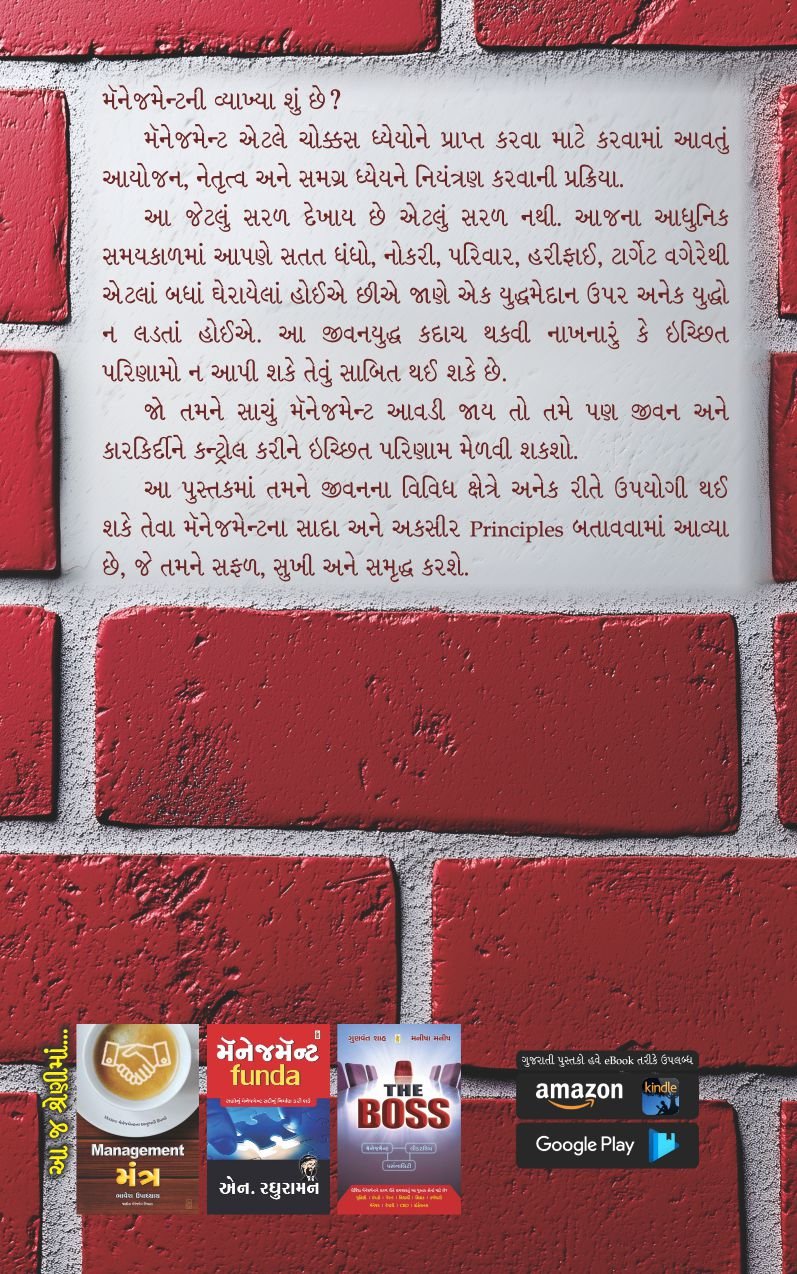 મૅનેજમેન્ટની વ્યાખ્યા શું છે?
મૅનેજમેન્ટ એટલે ચોક્કસ ધ્યેયોને પ્રાપ્ત કરવા માટે કરવામાં આવતું
આયોજન, નેતૃત્વ અને સમગ્ર ધ્યેયને નિયંત્રણ કરવાની પ્રક્રિયા.
આ જેટલું સરળ દેખાય છે એટલું સરળ નથી. આજના આધુનિક
સમયકાળમાં આપણે સતત ધંધો, નોકરી, પરિવાર, હરીફાઈ, ટાર્ગેટ વગેરેથી
એટલાં બધાં ઘેરાયેલાં હોઈએ છીએ જાણે એક યુદ્ધમેદાન ઉપર અનેક યુદ્ધો
ન લડતાં હોઈએ. આ જીવનયુદ્ધ કદાચ થકવી નાખનારું કે ઇચ્છિત
પરિણામો ન આપી શકે તેવું સાબિત થઈ શકે છે.
જો તમને સાચું મૅનેજમેન્ટ આવડી જાય તો તમે પણ જીવન અને
કારકિર્દીને કન્ટ્રોલ કરીને ઇચ્છિત પરિણામ મેળવી શકશો.
આ પુસ્તકમાં તમને જીવનના વિવિધ ક્ષેત્રે અનેક રીતે ઉપયોગી થઈ
શકે તેવા મૅનેજમેન્ટના સાદા અને અકસીર Principles બતાવવામાં આવ્યા
છે, જે તમને સફળ, સુખી અને સમૃદ્ધ કરશે.
આ જ શ્રેણીમાં...
Management
મંત્ર
ભાવેશ ઉપાધ્યાય
મૅનેજમૅન્ટ
funda
એન. રઘુરામન
ગુણવંત શાહ
મનીષા મનીષ
THE
BOSS
મેનેજમેન્ટ
લીડરશિપ
પર્સનાલિટી
ગુજરાતી પુસ્તકો હવે eBook તરીકે ઉપલબ્ધ
amazon
kindle
Google Play